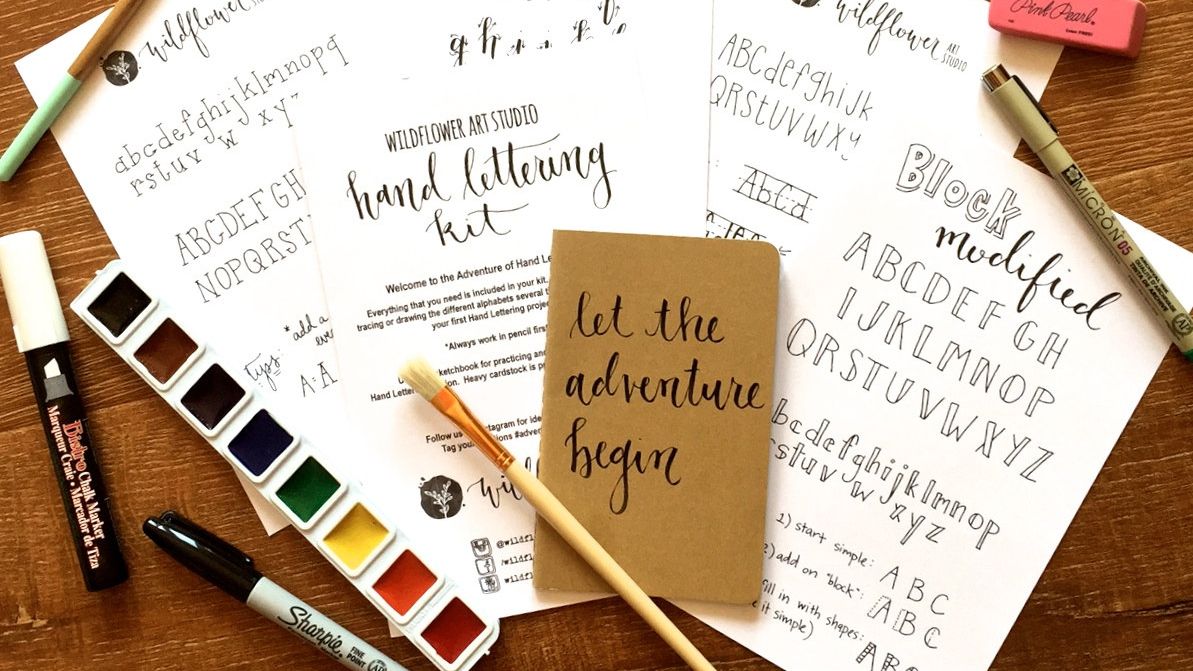 wildflower
abcdefghijklmnopq
rstuv w xyz
ABCDEFGH
NOPQRST
*add a
tips:
wildflower ART STUDIO
WILDFLOWER ART STUDIO
hand lettering
kit
Welcome to the Adventure of Hand
Everything that you need is included in your kit.
tracing or drawing the different alphabets several
your first Hand Lettering
*Always work in pencil first
sketchbook for practicing and
Hand Heavy cardstock is
Follow us Instagram for
Tag your
let the
adventure
begin
ABCdefghiJk
QRStUVWXy
Abcd
Block
modified
ABCDEFGH
IJKLMNOP
QRSTUVWXYZ
bcdefghijklmnop
stuv w xyz
1) start simple: ABC
2) add on "block": ABC
fill in with shapes: ABC
it simple)
Pink Pearl
MICRON 05
Bistro
Chalk Marker
Marqueur Craie • Marcador de Tiza
Sharpie
FINE POINT